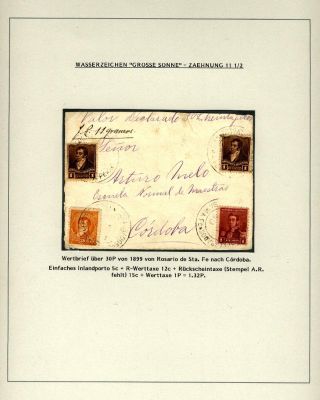 WASSERZEICHEN "GROSSE SONNE" - ZAEHNUNG 11 1/2
Valor Declarado
11 gramos
Señor
Arturo Melo
Escuela Normal de Maestros
Córdoba
Wertbrief über 30P von 1899 von Rosario de Sta. Fe nach Córdoba.
Einfaches Inlandporto 5c + R-Werttaxe 12c + Rückscheintaxe (Stempel A.R.
fehlt) 15c + Werttaxe 1P = 1.32P.